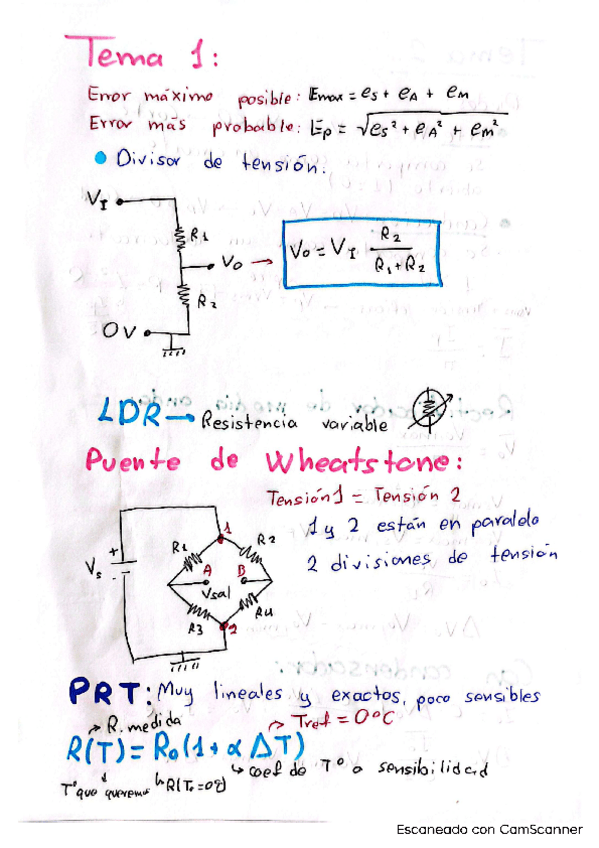 Tema 1:
Error máximo posible: Emax = es + eA + eM
Error más probable: Ep = √es² + eA² + eM²
• Divisor de tensión:
VI
R1
Vo → Vo = VI R2 / R1 + R2
R2
0V
LDR → Resistencia variable
Puente de Wheatstone:
Tensión 1 = Tensión 2
1 y 2 están en paralelo
2 divisiones de tensión
Vs
+
R1
1
R2
A
B
Vsal
R3
2
R4
PRT: Muy lineales y exactos, poco sensibles
→ R. medida
→ Tref = 0°C
R(T) = R0 (1 + α ΔT)
↳ coef de Tº o sensibilidad
Tº que queremos
Escaneado con CamScanner